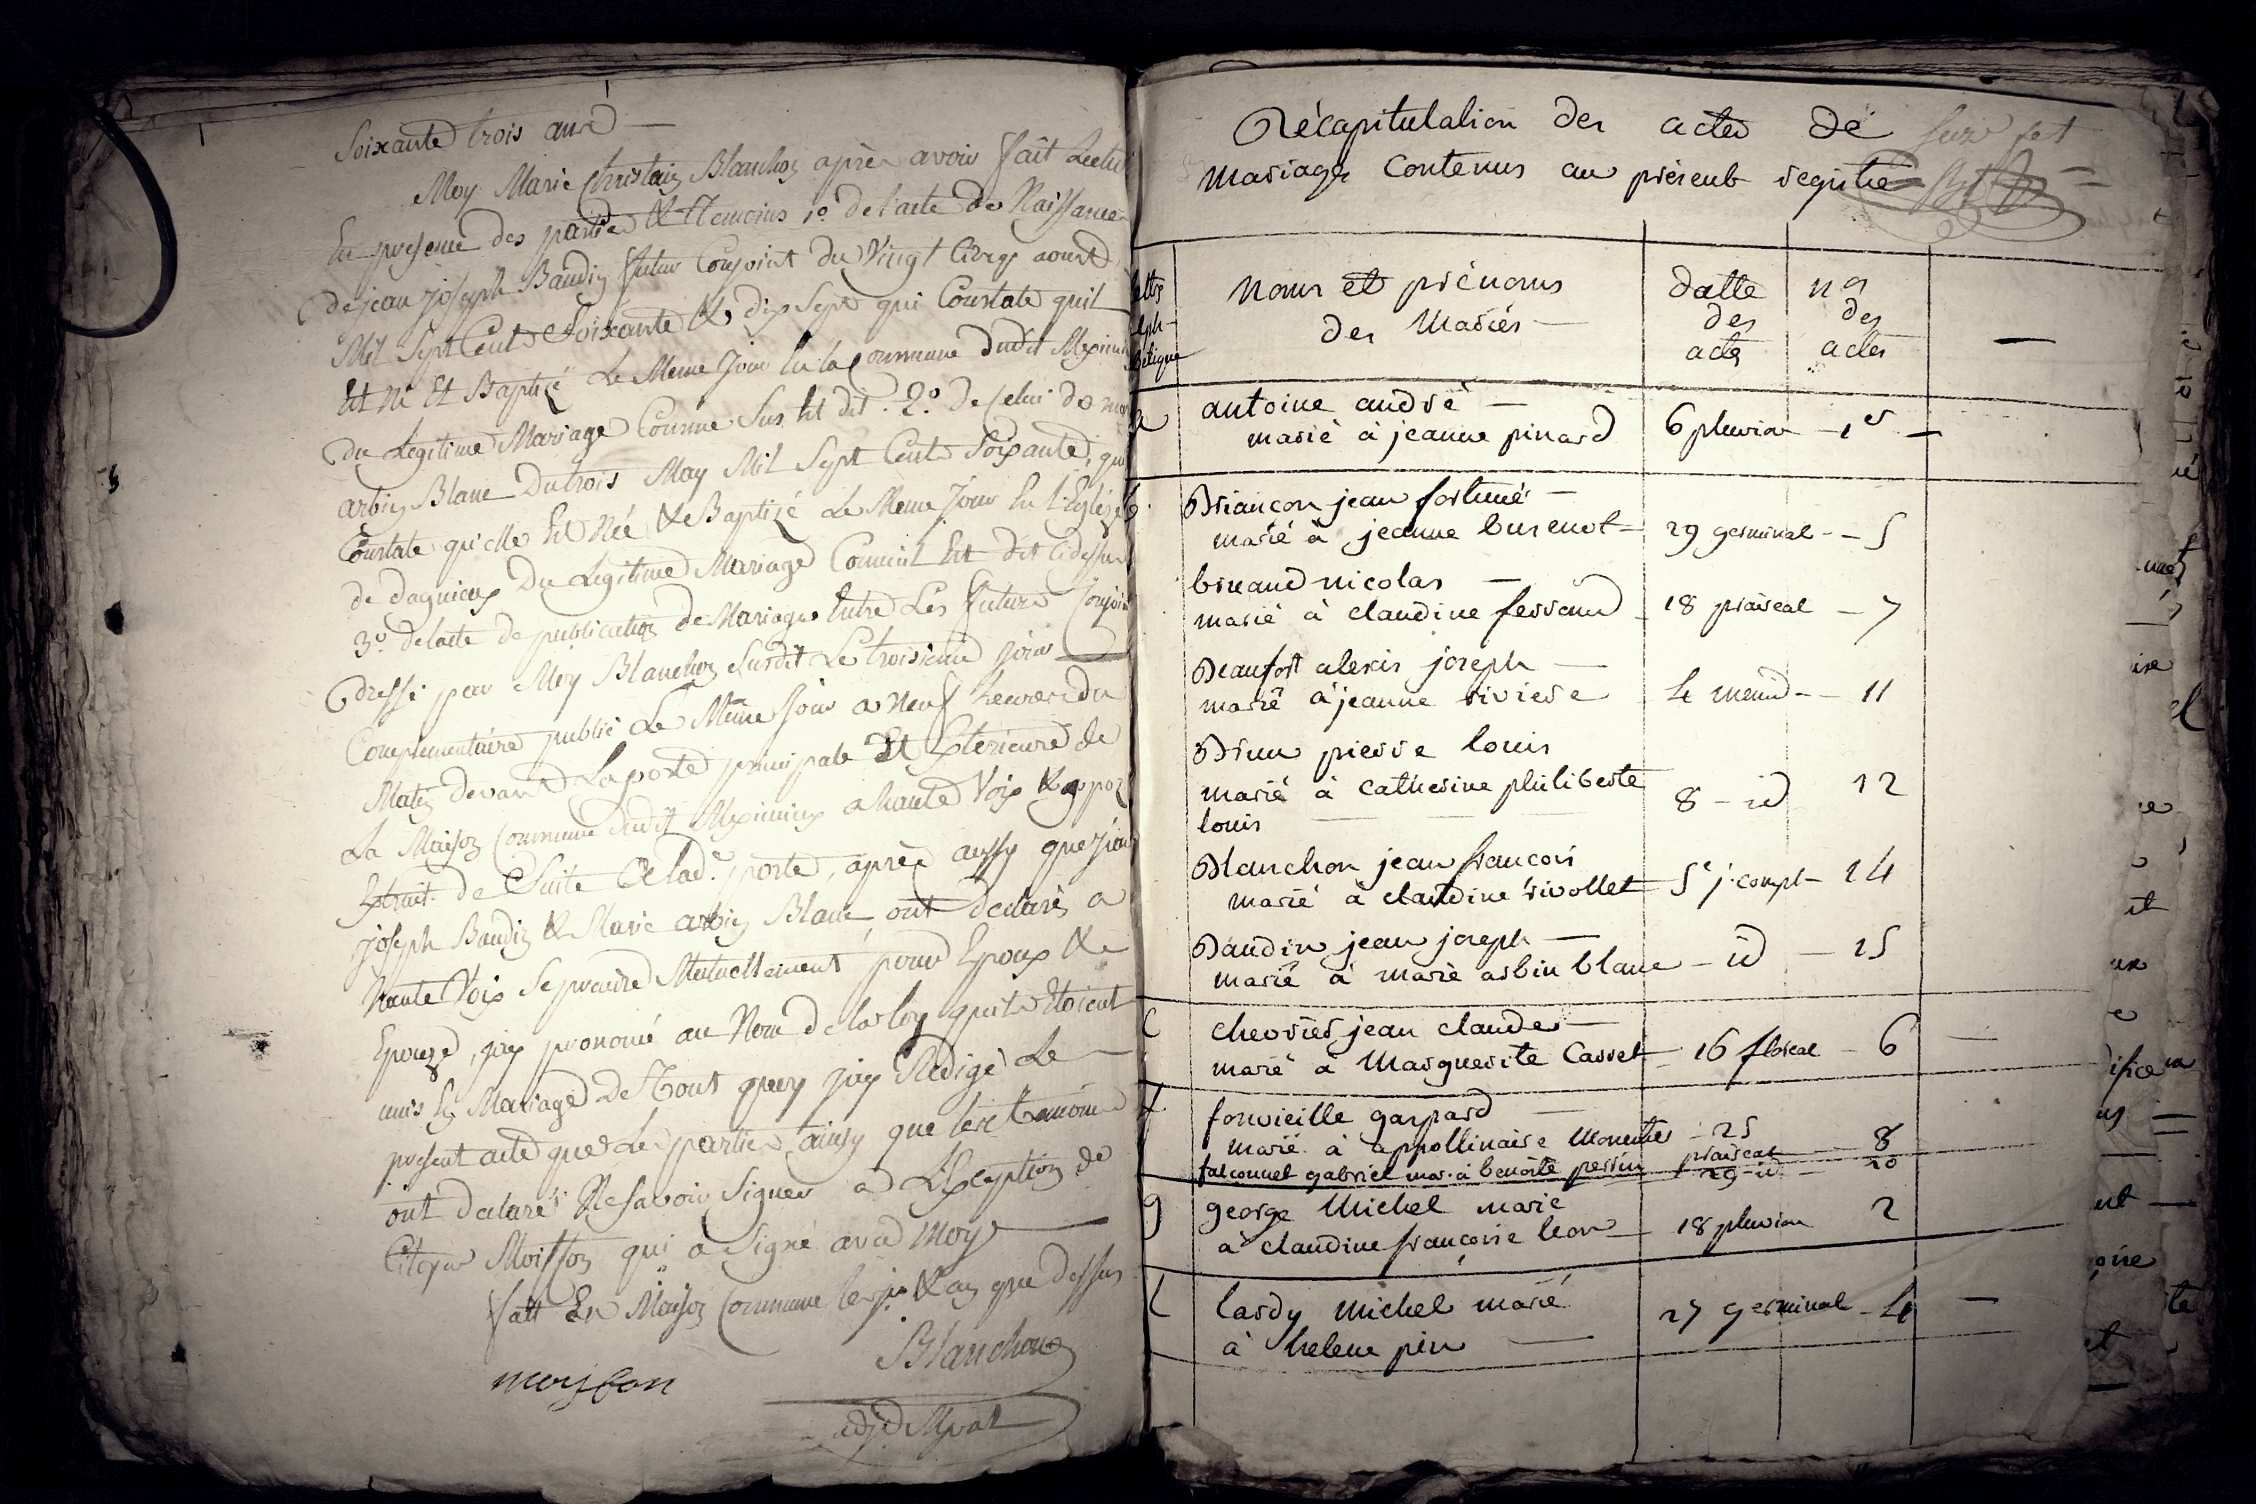 Soixante trois ans
Moy Marie Christain Blanchon après avoir fait Lecture
En presence des parties & Temoins 1º. de l'acte de Naissance
de jean joseph Baudin futur Conjoint du Vingt Cinq aoust
Mil Sept Cent Soixante & dix Sept qui Constate quil
Est Né Et Baptizé Le Meme Jour En la Commune dudit
du Legitime Mariage Comme Sus Est dit. 2º. de Celui de
arbin Blanc Du trois May Mil Sept Cent Soixante, qui
Constate qu'elle Est Née & Baptizé Le Meme Jour En L'Eglize
de dagnieux Du Legitime Mariage Comme il Est dit Cidessus
3º. de lacte de publication de Mariage Entre Les futurs Conjoints
dressé par Moy Blanchon Susdit Le troisieme jour
Complementaire publié Le Même Jour a Neuf heures du
Matin devant La porte principale Et Exterieure de
La Maison Commune dudit a haute Voix &
Extrait de Suite a lade. porte, après aussy que jean
joseph Baudin & Marie arbin Blanc, ont declarés a
haute Voix Se prendre Mutuellement pour Epoux &
Epouze, jay prononcé au Nom de la loy quils Etoient
unis En Mariage De Tout quoy jay Redigé Le
present acte que Les parties ainsy que les temoins
ont declaré Ne Savoir Signer a L'Exception de
Citoyen Moisson qui a Signé avec Moy
fait En Maison Commune les jr. & an que dessus
Blanchon
moisson
Récapitulation des actes de
mariages contenus au présent registre
lettres
alpha-
bétique
noms et prénoms
des mariés
datte
des
actes
nos
des
actes
a
antoine andré
marié à jeanne pinard
6 pluviose
1er
b
Briancon jean fortuné
marié à jeanne burenot
29 germinal
5
bruand nicolas
marié à claudine ferrand
18 prairéal
7
Beaufort alexis joseph
marié à jeanne riviere
4 messid
11
Brun pierre louis
marié à catherine philiberte
louis
8 - id
12
Blanchon jean francois
marié à claudine rivollet
5e j. compl
14
Baudin jean joseph
marié à marie arbin blanc
id
15
C
chevrier jean claude
marié à Marguerite Casset
16 floreal
6
f
fonvieille gaspard
marié à appollinaire
25
prairéal
8
falconnet gabriel mar. à benoite perrin
29 - id
10
g
george Michel marié
à claudine francoise leon
18 pluviose
2
L
lardy Michel marié
à helene pin
27 germinal
4